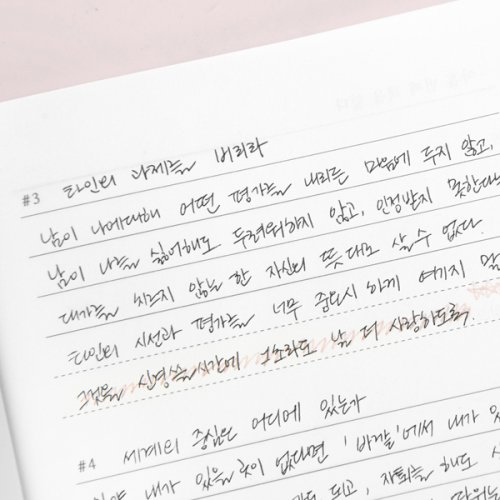 #3 타인의 과제를 버리라
남이 나에대해 어떤 평가를 내리든 마음에 두지 않고,
남이 나를 싫어해도 두려워하지 않고, 인정받지 못한다는
대가를 치르지 않는 한 자신의 뜻대로 살 수 없다.
타인의 시선과 평가를 너무 중요시 여기지 말
그것을 신경쓸 시간에 날 더 사랑하도록
#4 세계의 중심은 어디에 있는가
내가 있을 곳이 없다면 '바깥'에서 내가 있
되고, 자퇴를 해도